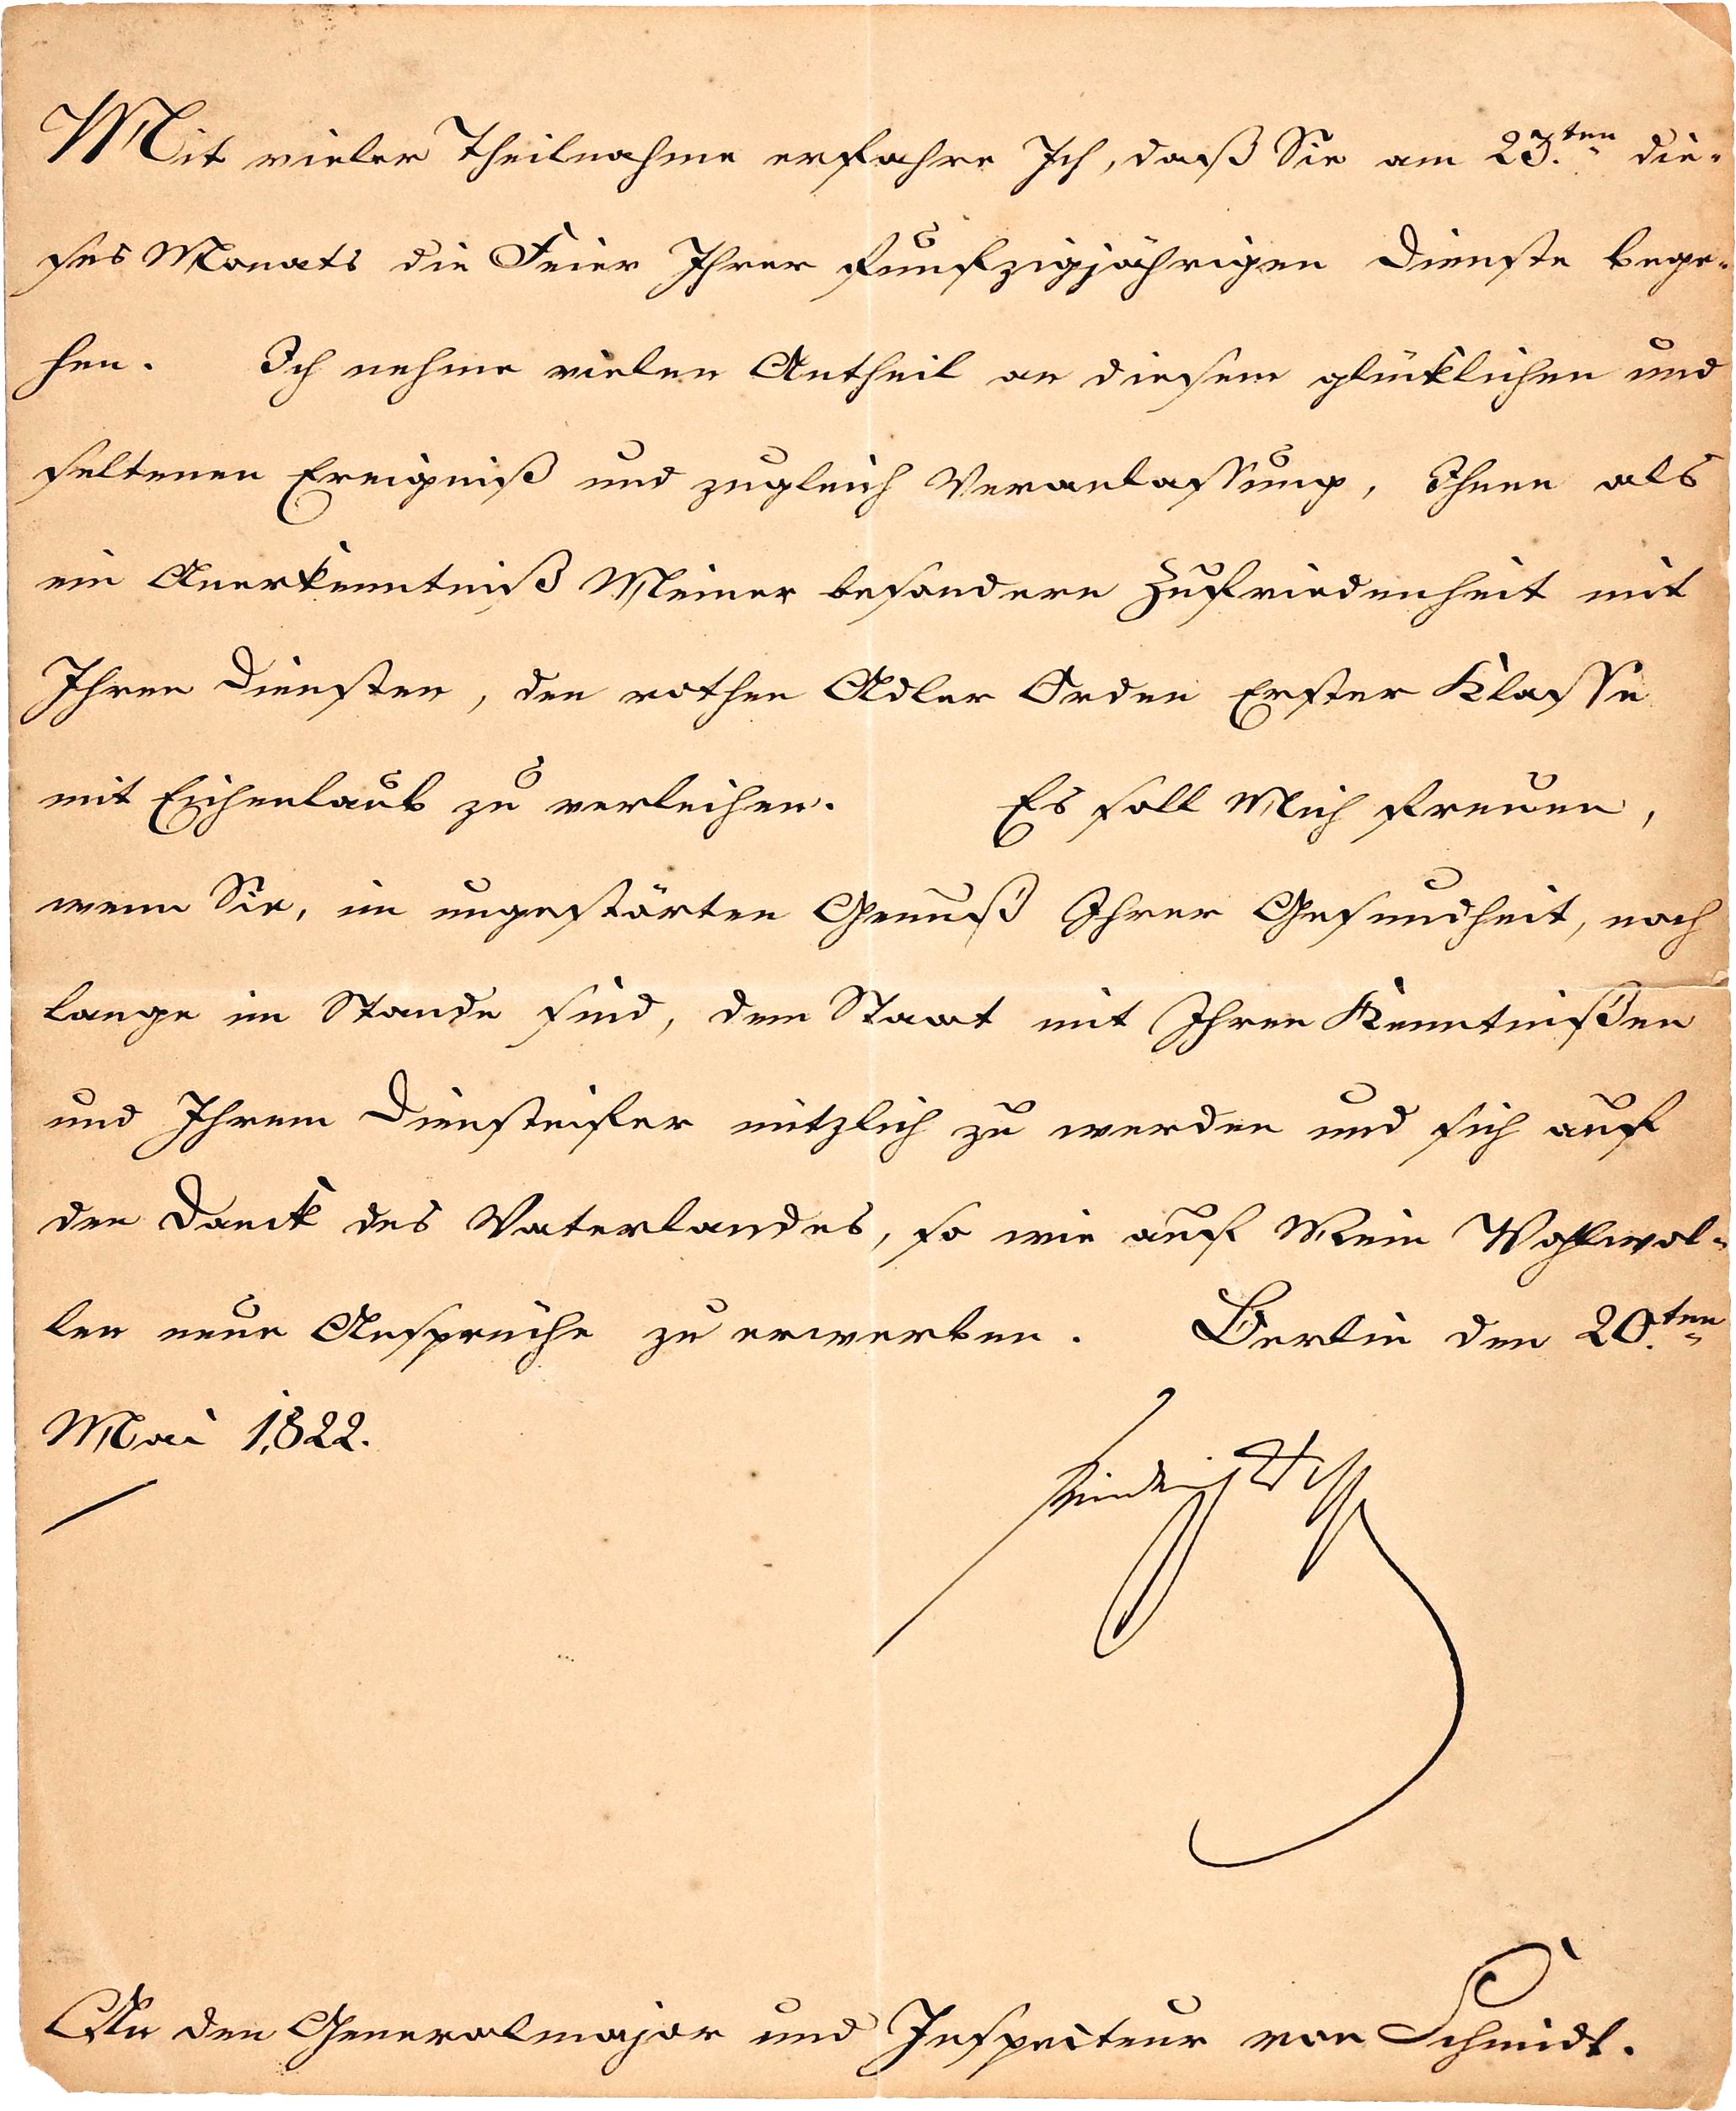 Mit vieler Theilnahme erfahre Ich, daß Sie am 23.ten die-
ses Monats die Feier Ihrer funfzigjährigen Dienste bege-
hen. Ich nehme vielen Antheil an diesem glücklichen und
seltenen Ereigniß und zugleich Veranlassung, Ihnen als
ein Anerkenntniß Meiner besondern Zufriedenheit mit
Ihren Diensten, den rothen Adler Orden Erster Klasse
mit Eichenlaub zu verleihen. Es soll Mich freuen,
wenn Sie, im ungestörten Genuß Ihrer Gesundheit, noch
lange im Stande sind, dem Staat mit Ihren Kenntnißen
und Ihrem Diensteifer nützlich zu werden und sich auf
den Danck des Vaterlandes, so wie auf Mein Wohlwol-
len neue Ansprüche zu erwerben. Berlin den 20.ten
Mai 1822.
Friedrich Wilhelm
An den Generalmajor und Inspecteur von Schmidt.